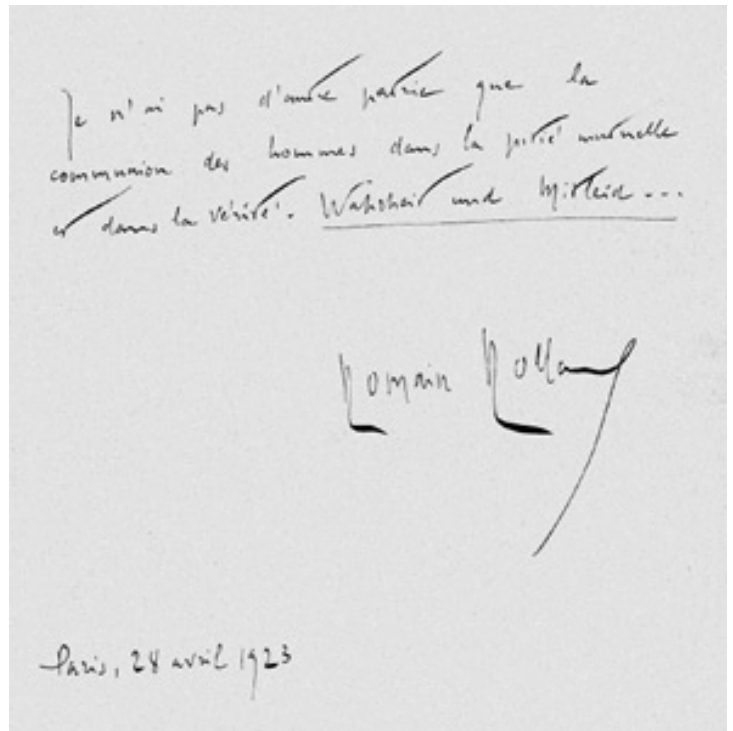 Je n'ai pas d'autre patrie que la
communion des hommes dans la pitié mutuelle
et dans la vérité. Wahrheit und Mitleid...
Romain Rolland
Paris, 28 avril 1923